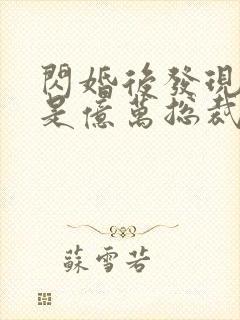 閃婚後發現
是億萬總裁
蘇雪若